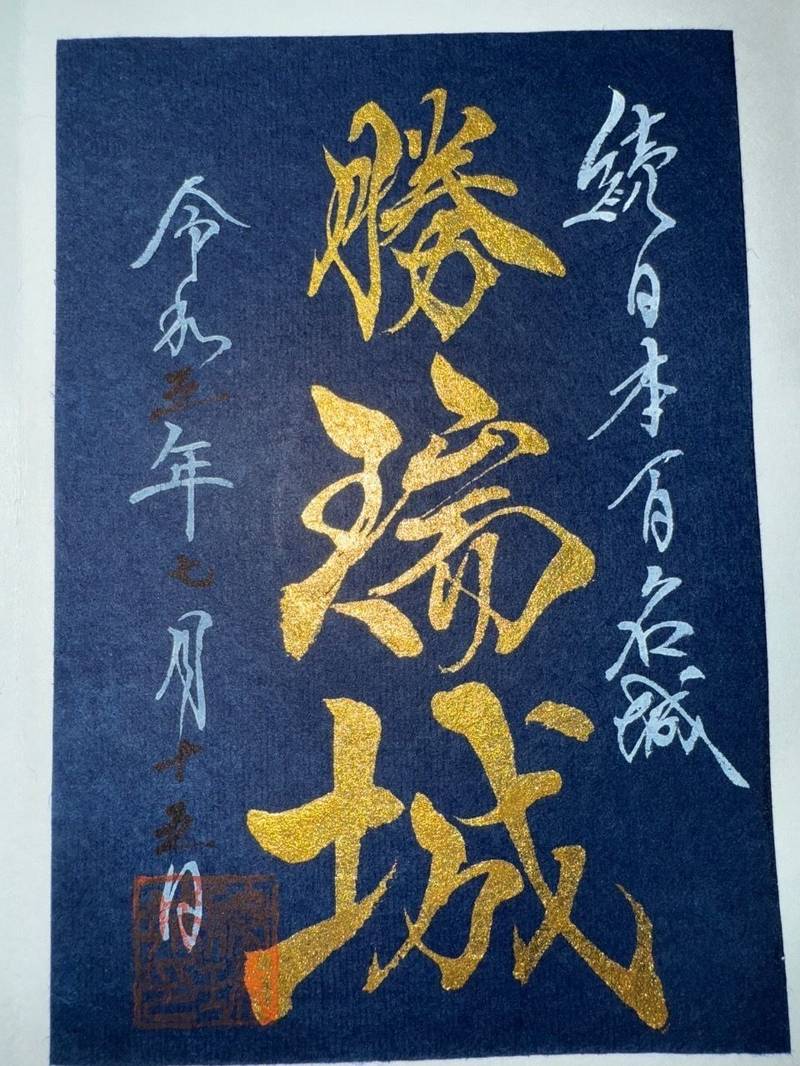 続日本百名城
勝瑞城
令和五年七月十五日